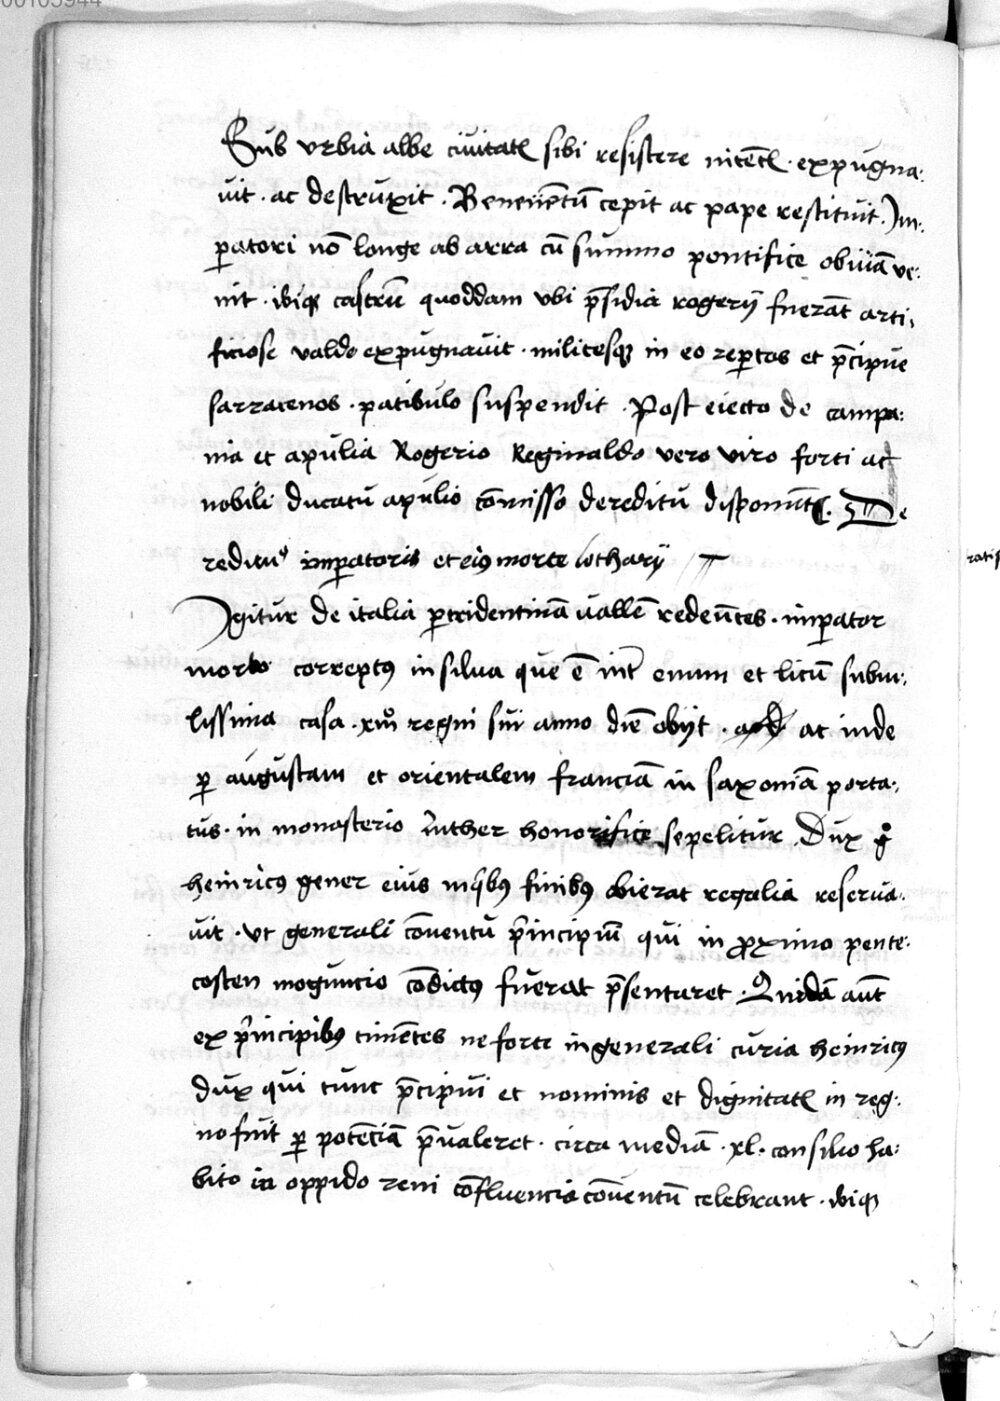 00105944
Sub vrbia albe ciuitatꝭ sibi resistere nitētꝭ · expugna:
uit · ac destruxit · Beneuētū cepit ac pape restituit · Im:
ꝑatori nō longe ab arra cū summo pontifice obuiā ve:
nit · ibiqꝫ castrū quoddam vbi p̄sidia rogerij fuerāt arti:
ficiose valde expugnauit · militesqꝫ in eo reꝑtos et p̄cipue
sarracenos · patibulo suspendit · Post eiecto de campa:
nia et apulia Rogerio Reginaldo vero viro forti ac
nobili ducatu apulie cōmisso de reditu disponūt · De
reditu imꝑatoris et eiꝰ morte lotharij
Igitur de italia ꝑ tridentinā uallē redeūtes · imꝑator
morbo correptꝰ in silua que ē int̄ enum et licū subui:
lissima casa · xiiiͦ regni sui anno diē obijt · ac inde
ꝑ augustam et orientalem franciā in saxoniā porta:
tus · in monasterio luther honorifice sepelitur Dux gͦ
heinricꝰ gener eius in qͥbꝰ finibꝰ obierat regalia reserua:
uit · vt generali cōuentu pͥncipiū qui in ꝓximo pente:
costen moguncie cōdictꝰ fuerat p̄sentaret · Quidā aūt
ex pͥncipibꝰ timētes ne forte in generali curia heinricꝰ
dux qui tunc p̄cipui et nominis et dignitatꝭ in reg:
no fuit ꝑ potēciā p̄ualeret · circa mediā · xl · consilio ha:
bito in oppido reni cōfluencia cōuentū celebrant · ibiqꝫ